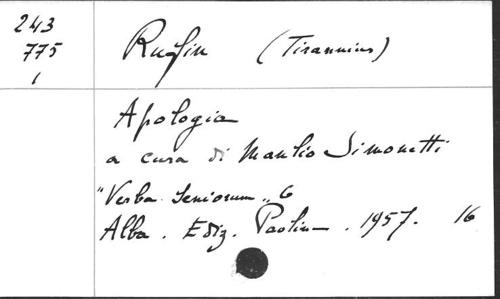 243
775
1
Rufin (Tirannius)
Apologia
a cura di Manlio Simonetti
"Verba Seniorum" 6
Alba. Ediz. Paolin. 1957. 16